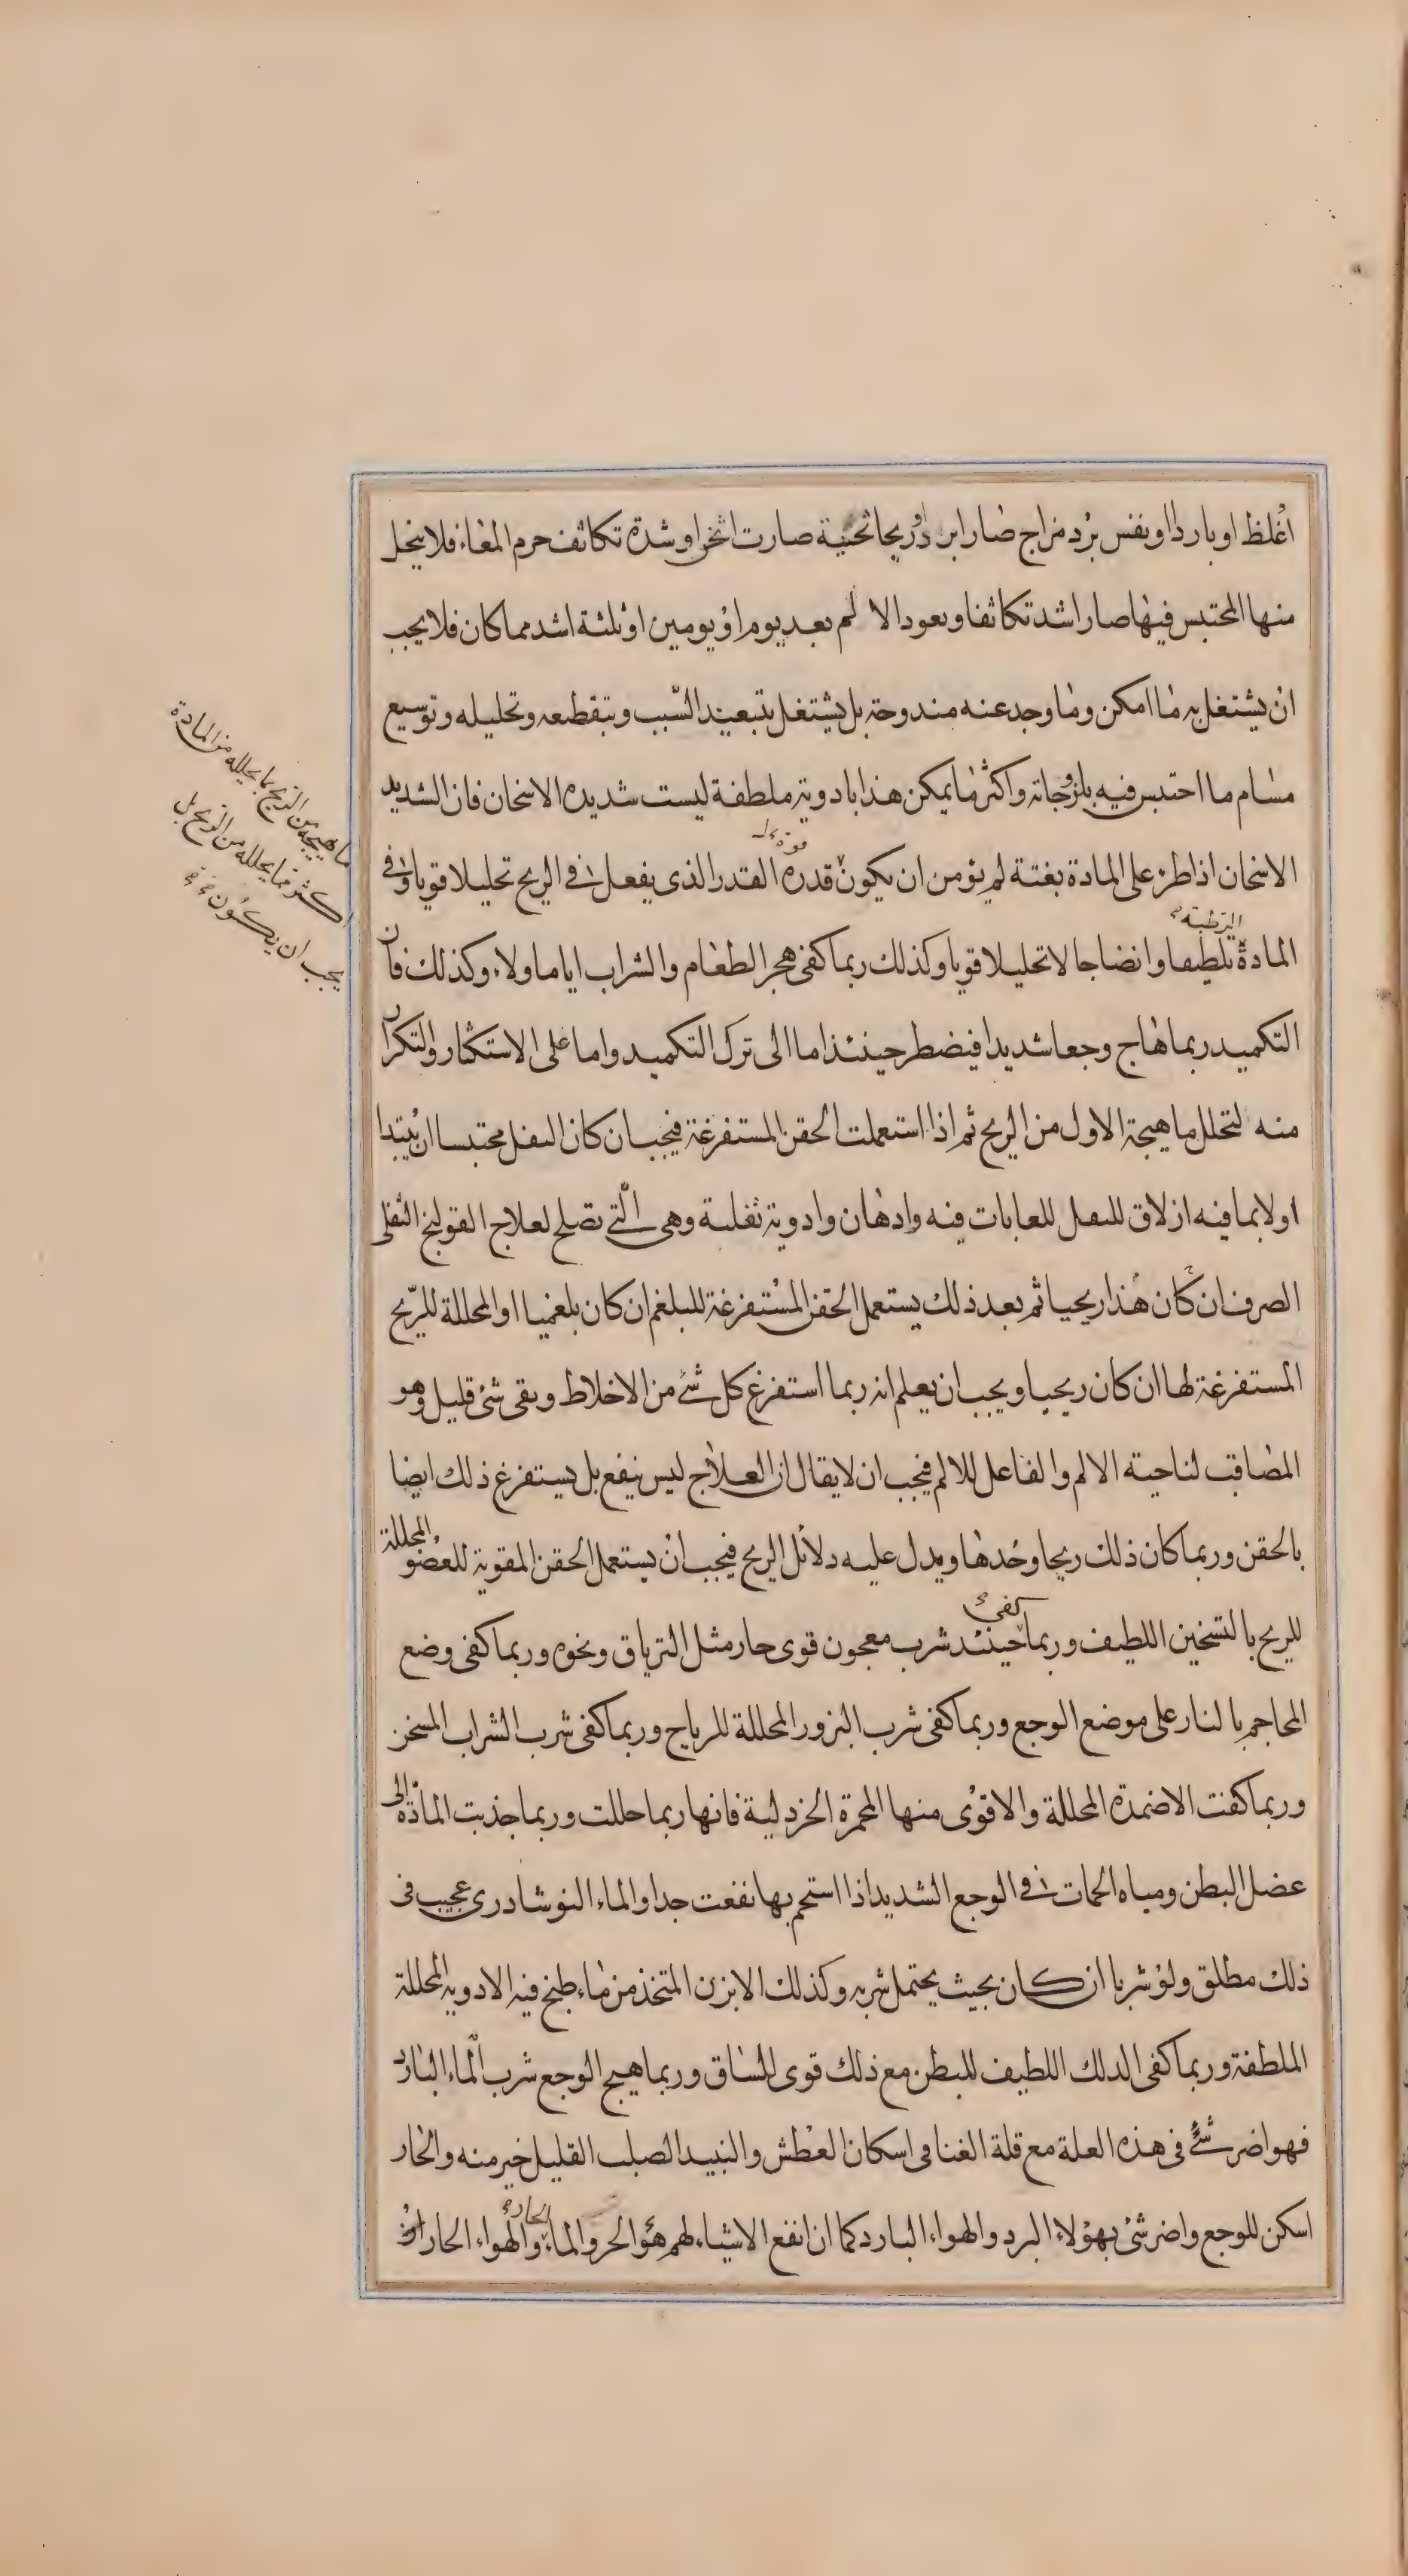 اغلظ او باردا او نفس برد مزاج صار ابرد او ريحا ثخنية صارت اثخن او شدة تكاثف جرم المعاء فلا ينحل
منها المحتبس فيها صار اشد تكاثفا ويعود الالم بعد يوم او يومين او ثلثة اشد مما كان فلا يجب
ان يشتغل به ما امكن وما وجد عنه مندوحة بل يشتغل بتبعيد السبب وبتقطيعه وتحليله وتوسيع
مسام ما احتبس فيه بلزوجاته واكثر ما يمكن هذا بادوية ملطفة ليست شديده الاسخان فان الشديد
الاسخان اذا طرء على المادة بغتة لم يؤمن ان يكون قدره القدر الذى يفعل فى الريح تحليلا قويا وفى
المادة تلطيفا وانضاجا لا تحليلا قويا وكذلك ربما كفى هجر الطعام والشراب اياما ولاء وكذلك فان
التكميد ربما هاج وجعا شديدا فيضطر حينئذ اما الى ترك التكميد واما على الاستكثار والتكرار
منه لتحلل ما هيجة الاول من الريح ثم اذا استعملت الحقن المستفرغة فيجب ان كان الثفل محتبسا ان يبتدا
اولا بما فيه ازلاق للثفل للعابات فيه وادهان وادوية ثفلية وهى التى تصلح لعلاج القولنج الثفلى
الصرف ان كان هذا ريحيا ثم بعد ذلك يستعمل الحقن المستفرغة للبلغم ان كان بلغميا او المحللة للريح
المستفرغة لها ان كان ريحيا ويجب ان يعلم انه ربما استفرغ كل شئ من الاخلاط وبقى شئ قليل وهو
المصاقب لناحية الالم والفاعل للالم فيجب ان لا يقال ان العلاج ليس ينفع بل يستفرغ ذلك ايضا
بالحقن وربما كان ذلك ريحا وحدها ويدل عليه دلائل الريح فيجب ان يستعمل الحقن المقوية للعضو والمحللة
للريح بالتسخين اللطيف وربما كفى حينئذ شرب معجون قوى حار مثل الترياق ونحوه وربما كفى وضع
المحاجم بالنار على موضع الوجع وربما كفى شرب البزور المحللة للرياح وربما كفى شرب الشراب المسخن
وربما كفت الاضمدة المحللة والاقوى منها المحمرة الخردلية فانها ربما حللت وربما جذبت المادة الى
عضل البطن ومياه الحمات فى الوجع الشديد اذا استحم بها نفعت جدا والماء النوشادرى عجيب فى
ذلك مطلق ولو شربا ان كان بحيث يحتمل شربه وكذلك الابزن المتخذ من ماء طبخ فيه الادوية المحللة
الملطفة وربما كفى الدلك اللطيف للبطن مع ذلك قوى للساق وربما هيج الوجع شرب الماء البارد
فهو اضر شئ فى هذه العلة مع قلة الغنا فى اسكان العطش والنبيد الصلب القليل خير منه والحار
اسكن للوجع واضر شئ بهؤلاء البرد والهواء البارد كما ان انفع الاشياء لهم هو الحر والماء الحار والهواء الحار
ما هيجه من الريح بما يحلله من المادة
اكثر مما يحلله من الريح بل
يجب ان يكون